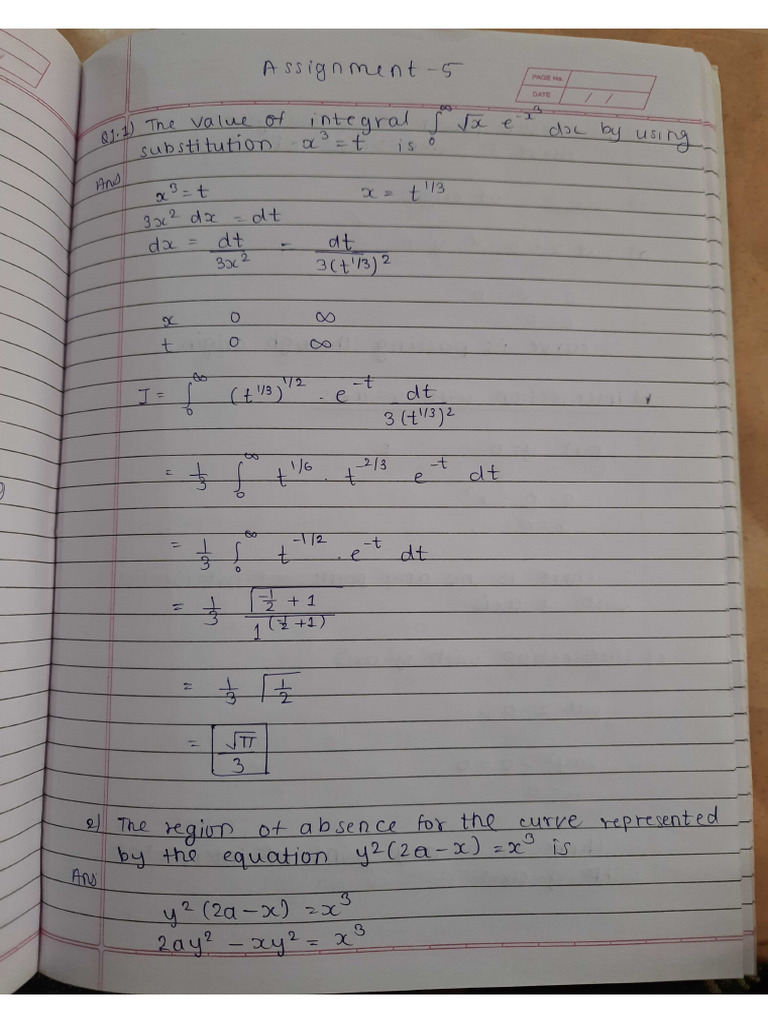 Assignment - 5
PAGE No.
DATE / /
Q1.1) The value of integral ∫₀^∞ √x e^{-x³} dx by using
substitution x³ = t is
Ans
x³ = t x = t^{1/3}
3x² dx = dt
dx = dt/3x² = dt/3(t^{1/3})²
x 0 ∞
t 0 ∞
I = ∫₀^∞ (t^{1/3})^{1/2} . e^{-t} dt/3(t^{1/3})²
= 1/3 ∫₀^∞ t^{1/6} . t^{-2/3} e^{-t} dt
= 1/3 ∫₀^∞ t^{-1/2} . e^{-t} dt
= 1/3 Γ(-1/2 + 1)/1^{(-1/2 + 1)}
= 1/3 Γ(1/2)
= √π/3
2) The region of absence for the curve represented
by the equation y²(2a-x) = x³ is
Ans
y²(2a-x) = x³
2ay² - xy² = x³